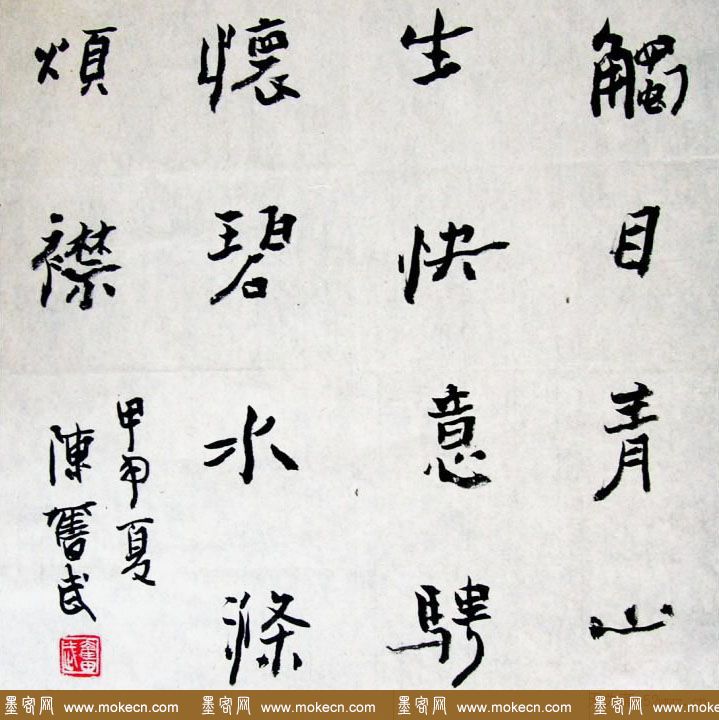 觸目青山
生快意騁
懷碧水滌
煩襟
甲申夏
陳奮武
奮武
墨客网 www.mokecn.com 墨客网 www.mokecn.com 墨客网 www.mokecn.com 墨客网 www.mokecn.com